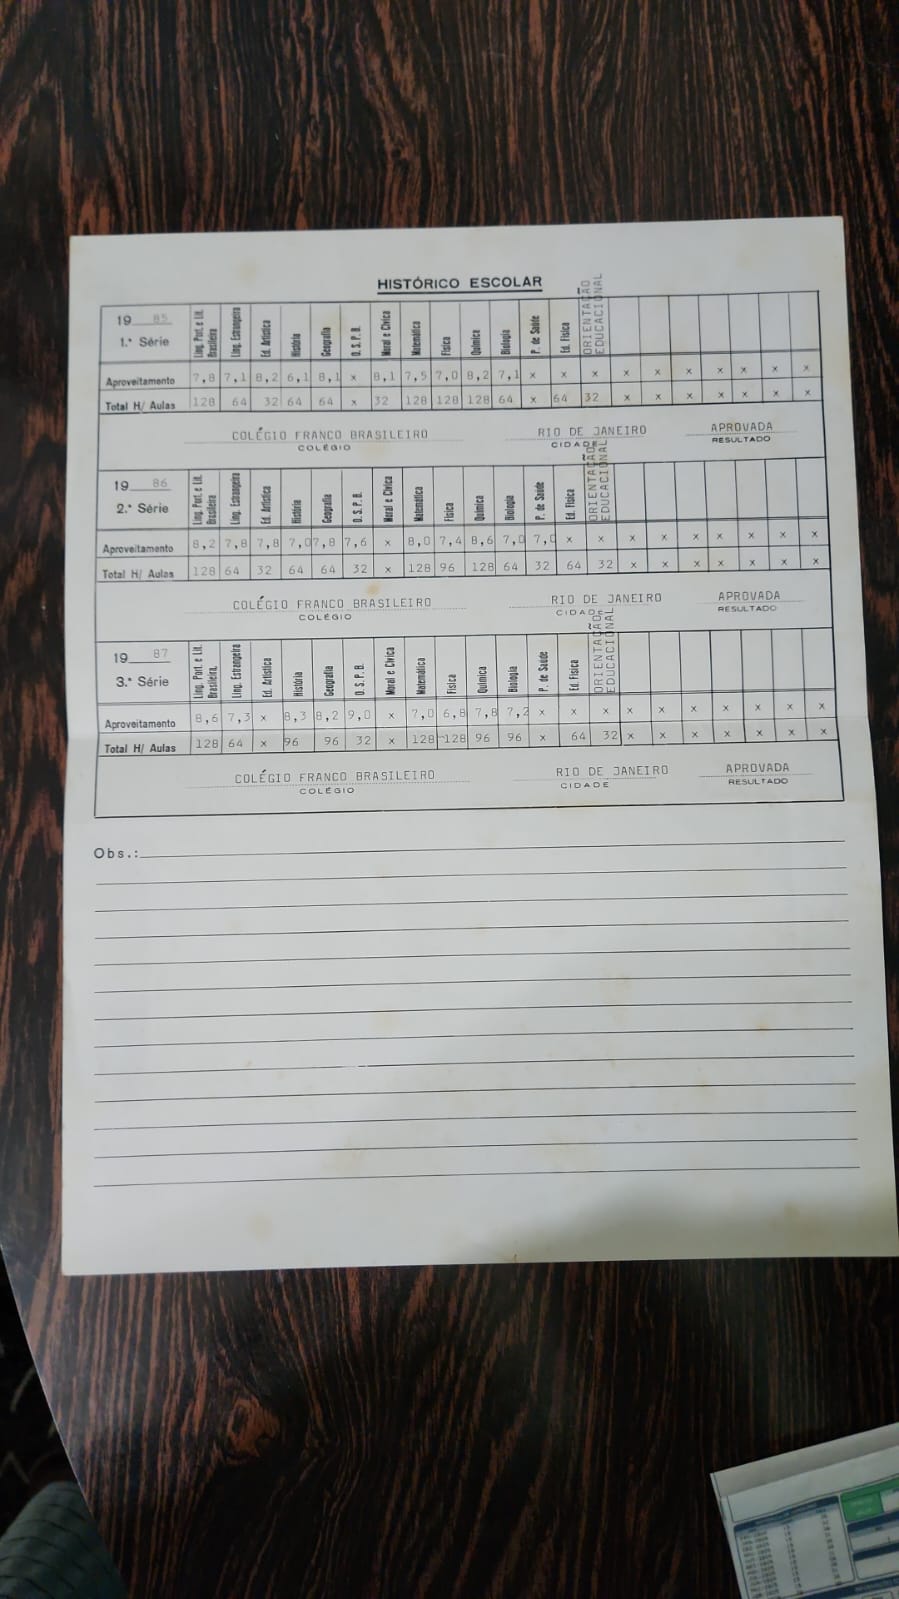 HISTÓRICO ESCOLAR
19 85
1.ª Série
Ling. Port. e Lit. Brasileira Ling. Estrangeira Ed. Artística História Geografia O. S. P. B. Moral e Cívica Matemática Física Química Biologia P. de Saúde Ed. Física ORIENTAÇÃO EDUCACIONAL
Aproveitamento 7,8 7,1 8,2 6,1 8,1 x 8,1 7,5 7,0 8,2 7,1 x x x x x x x x x x
Total H/ Aulas 128 64 32 64 64 x 32 128 128 128 64 x 64 32 x x x x x x x
COLÉGIO FRANCO BRASILEIRO RIO DE JANEIRO APROVADA
COLÉGIO CIDADE RESULTADO
19 86
2.ª Série
Ling. Port. e Lit. Brasileira Ling. Estrangeira Ed. Artística História Geografia O. S. P. B. Moral e Cívica Matemática Física Química Biologia P. de Saúde Ed. Física ORIENTAÇÃO EDUCACIONAL
Aproveitamento 8,2 7,8 7,8 7,0 7,8 7,6 x 8,0 7,4 8,6 7,0 7,0 x x x x x x x x x
Total H/ Aulas 128 64 32 64 64 32 x 128 96 128 64 32 64 32 x x x x x x x
COLÉGIO FRANCO BRASILEIRO RIO DE JANEIRO APROVADA
COLÉGIO CIDADE RESULTADO
19 87
3.ª Série
Ling. Port. e Lit. Brasileira, Ling. Estrangeira Ed. Artística História Geografia O. S. P. B. Moral e Cívica Matemática Física Química Biologia P. de Saúde Ed. Física ORIENTAÇÃO EDUCACIONAL
Aproveitamento 8,6 7,3 x 8,3 8,2 9,0 x 7,0 6,8 7,8 7,2 x x x x x x x x x x
Total H/ Aulas 128 64 x 96 96 32 x 128 128 96 96 x 64 32 x x x x x x x
COLÉGIO FRANCO BRASILEIRO RIO DE JANEIRO APROVADA
COLÉGIO CIDADE RESULTADO
Obs.: